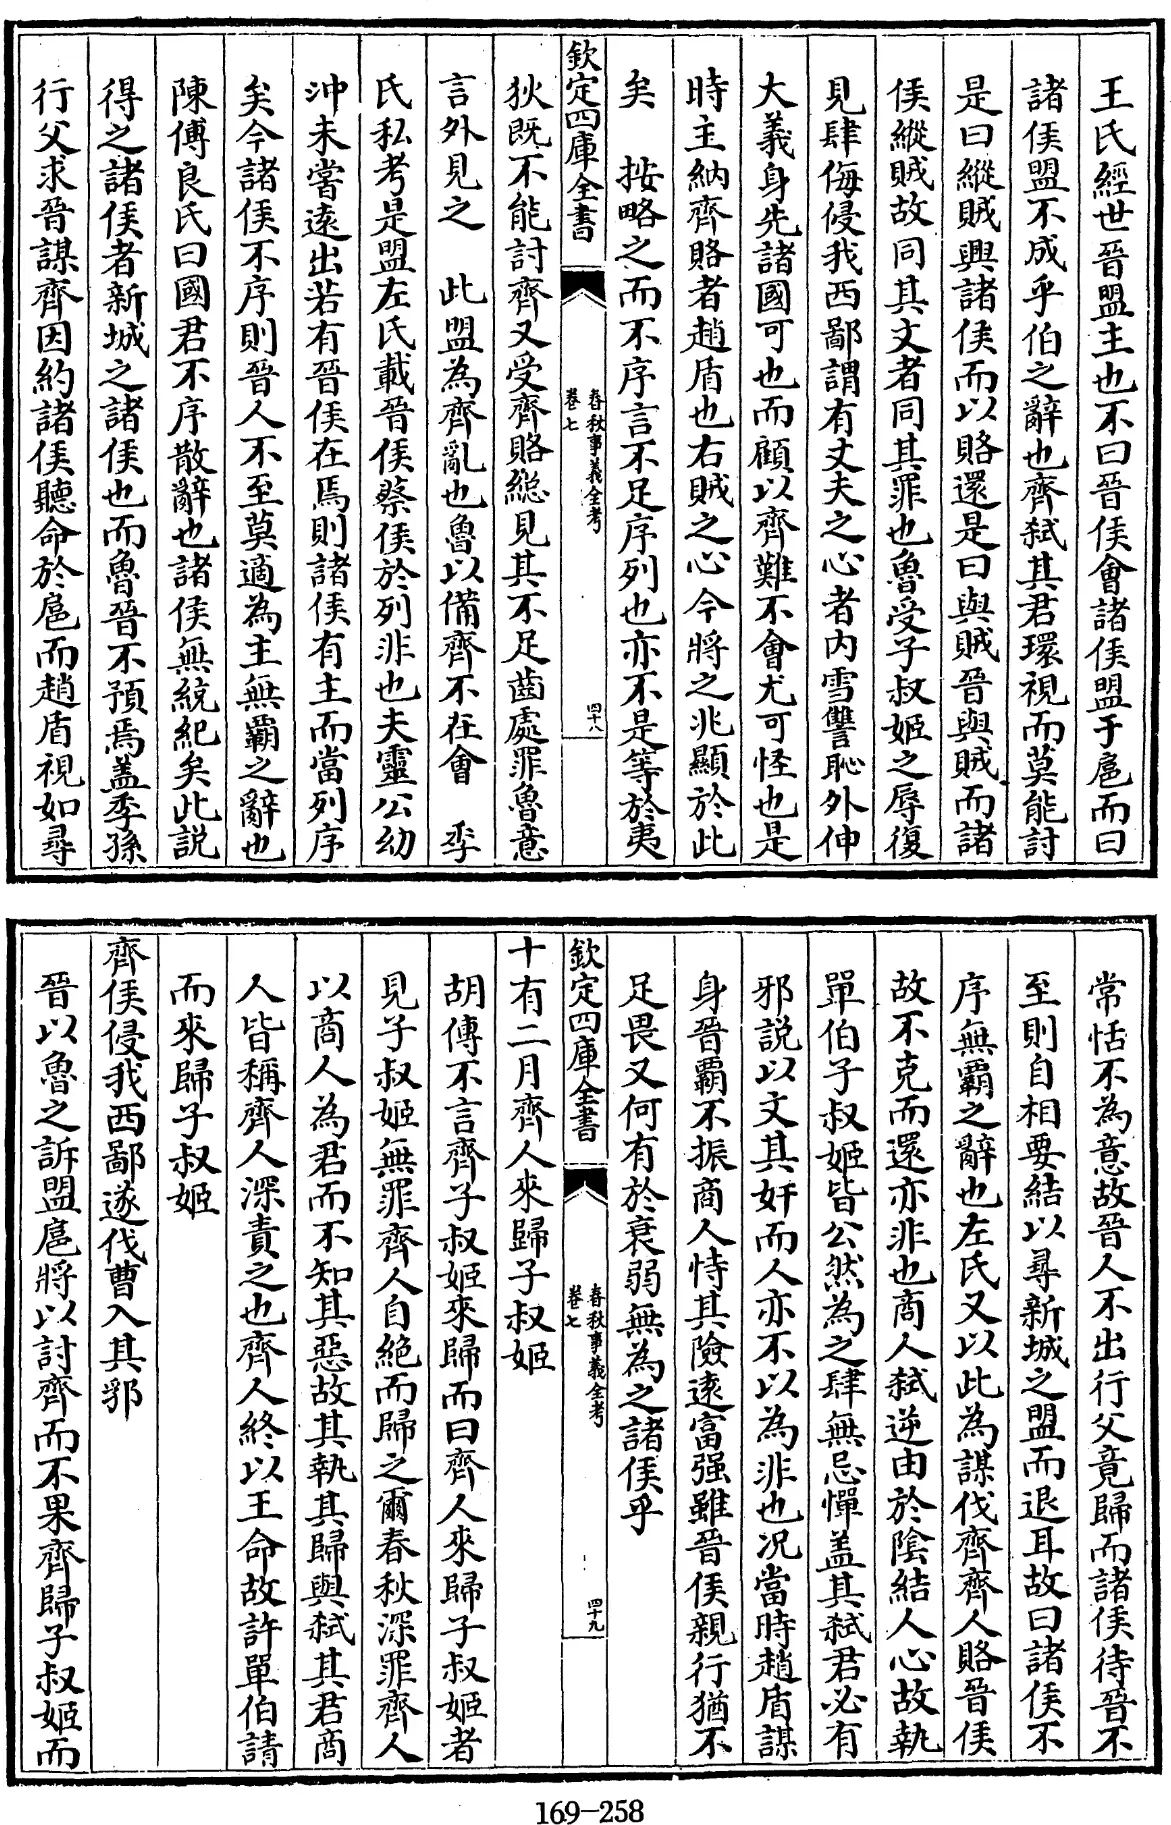 王氏經世晉盟主也不曰晉侯會諸侯盟于扈而曰
諸侯盟不成乎伯之辭也齊弑其君環視而莫能討
是曰縱賊興諸侯而以賂還是曰與賊晉與賊而諸
侯縱賊故同其文者同其罪也魯受子叔姬之辱復
見肆侮侵我西鄙謂有丈夫之心者内雪讐恥外伸
大義身先諸國可也而顧以齊難不會尤可怪也是
時主納齊賂者趙盾也右賊之心今將之兆顯於此
矣　按略之而不序言不足序列也亦不是等於夷
欽定四庫全書
春秋事義全考
卷七
四十八
狄既不能討齊又受齊賂總見其不足齒處罪魯意
言外見之　此盟為齊亂也魯以備齊不在會　季
氏私考是盟左氏載晉侯蔡侯於列非也夫靈公幼
沖未嘗遠出若有晉侯在焉則諸侯有主而當列序
矣今諸侯不序則晉人不至莫適為主無霸之辭也
陳傅良氏曰國君不序散辭也諸侯無統紀矣此說
得之諸侯者新城之諸侯也而魯晉不預焉盖季孫
行父求晉謀齊因約諸侯聽命於扈而趙盾視如尋
常恬不為意故晉人不出行父竟歸而諸侯待晉不
至則自相要結以尋新城之盟而退耳故曰諸侯不
序無霸之辭也左氏又以此為謀伐齊齊人賂晉侯
故不克而還亦非也商人弑逆由於陰結人心故執
單伯子叔姬皆公然為之肆無忌憚盖其弑君必有
邪說以文其奸而人亦不以為非也况當時趙盾謀
身晉霸不振商人恃其險遠富强雖晉侯親行猶不
足畏又何有於衰弱無為之諸侯乎
欽定四庫全書
春秋事義全考
卷七
四十九
十有二月齊人來歸子叔姬
胡傳不言齊子叔姬來歸而曰齊人來歸子叔姬者
見子叔姬無罪齊人自絕而歸之爾春秋深罪齊人
以商人為君而不知其惡故其執其歸與弑其君商
人皆稱齊人深責之也齊人終以王命故許單伯請
而來歸子叔姬
齊侯侵我西鄙遂伐曹入其郛
晉以魯之訴盟扈將以討齊而不果齊歸子叔姬而
169-258